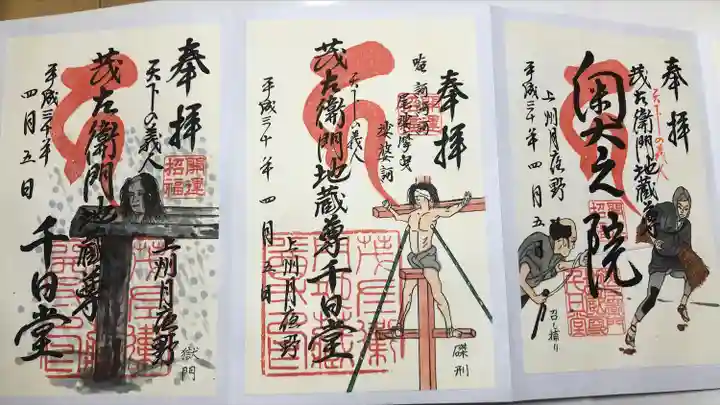 奉拝
天下の義人
茂左衛門地蔵尊
上州月夜野
千日堂
平成三十年
四月五日
開運
招福
獄門
奉拝
天下の義人
茂左衛門地蔵尊千日堂
上州月夜野
平成三十年 四月五日
磔刑
奉拝
天下の義人
茂左衛門地蔵尊
上州月夜野
平成三十年 四月五日
召し捕り